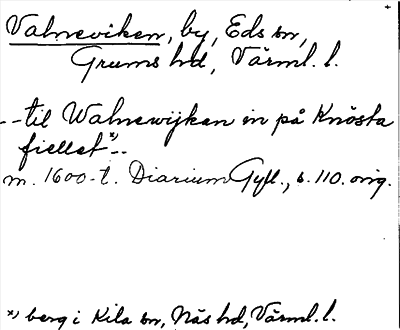 Valneviken, by, Eds sn,
Grums hd, Värml. l.
- - til Walnewijkan in på Knösta
fiellet x) - -
m. 1600-t. Diarium Gyll., s. 110. orig.
x) berg i Kila sn, Näs hd, Värml. l.